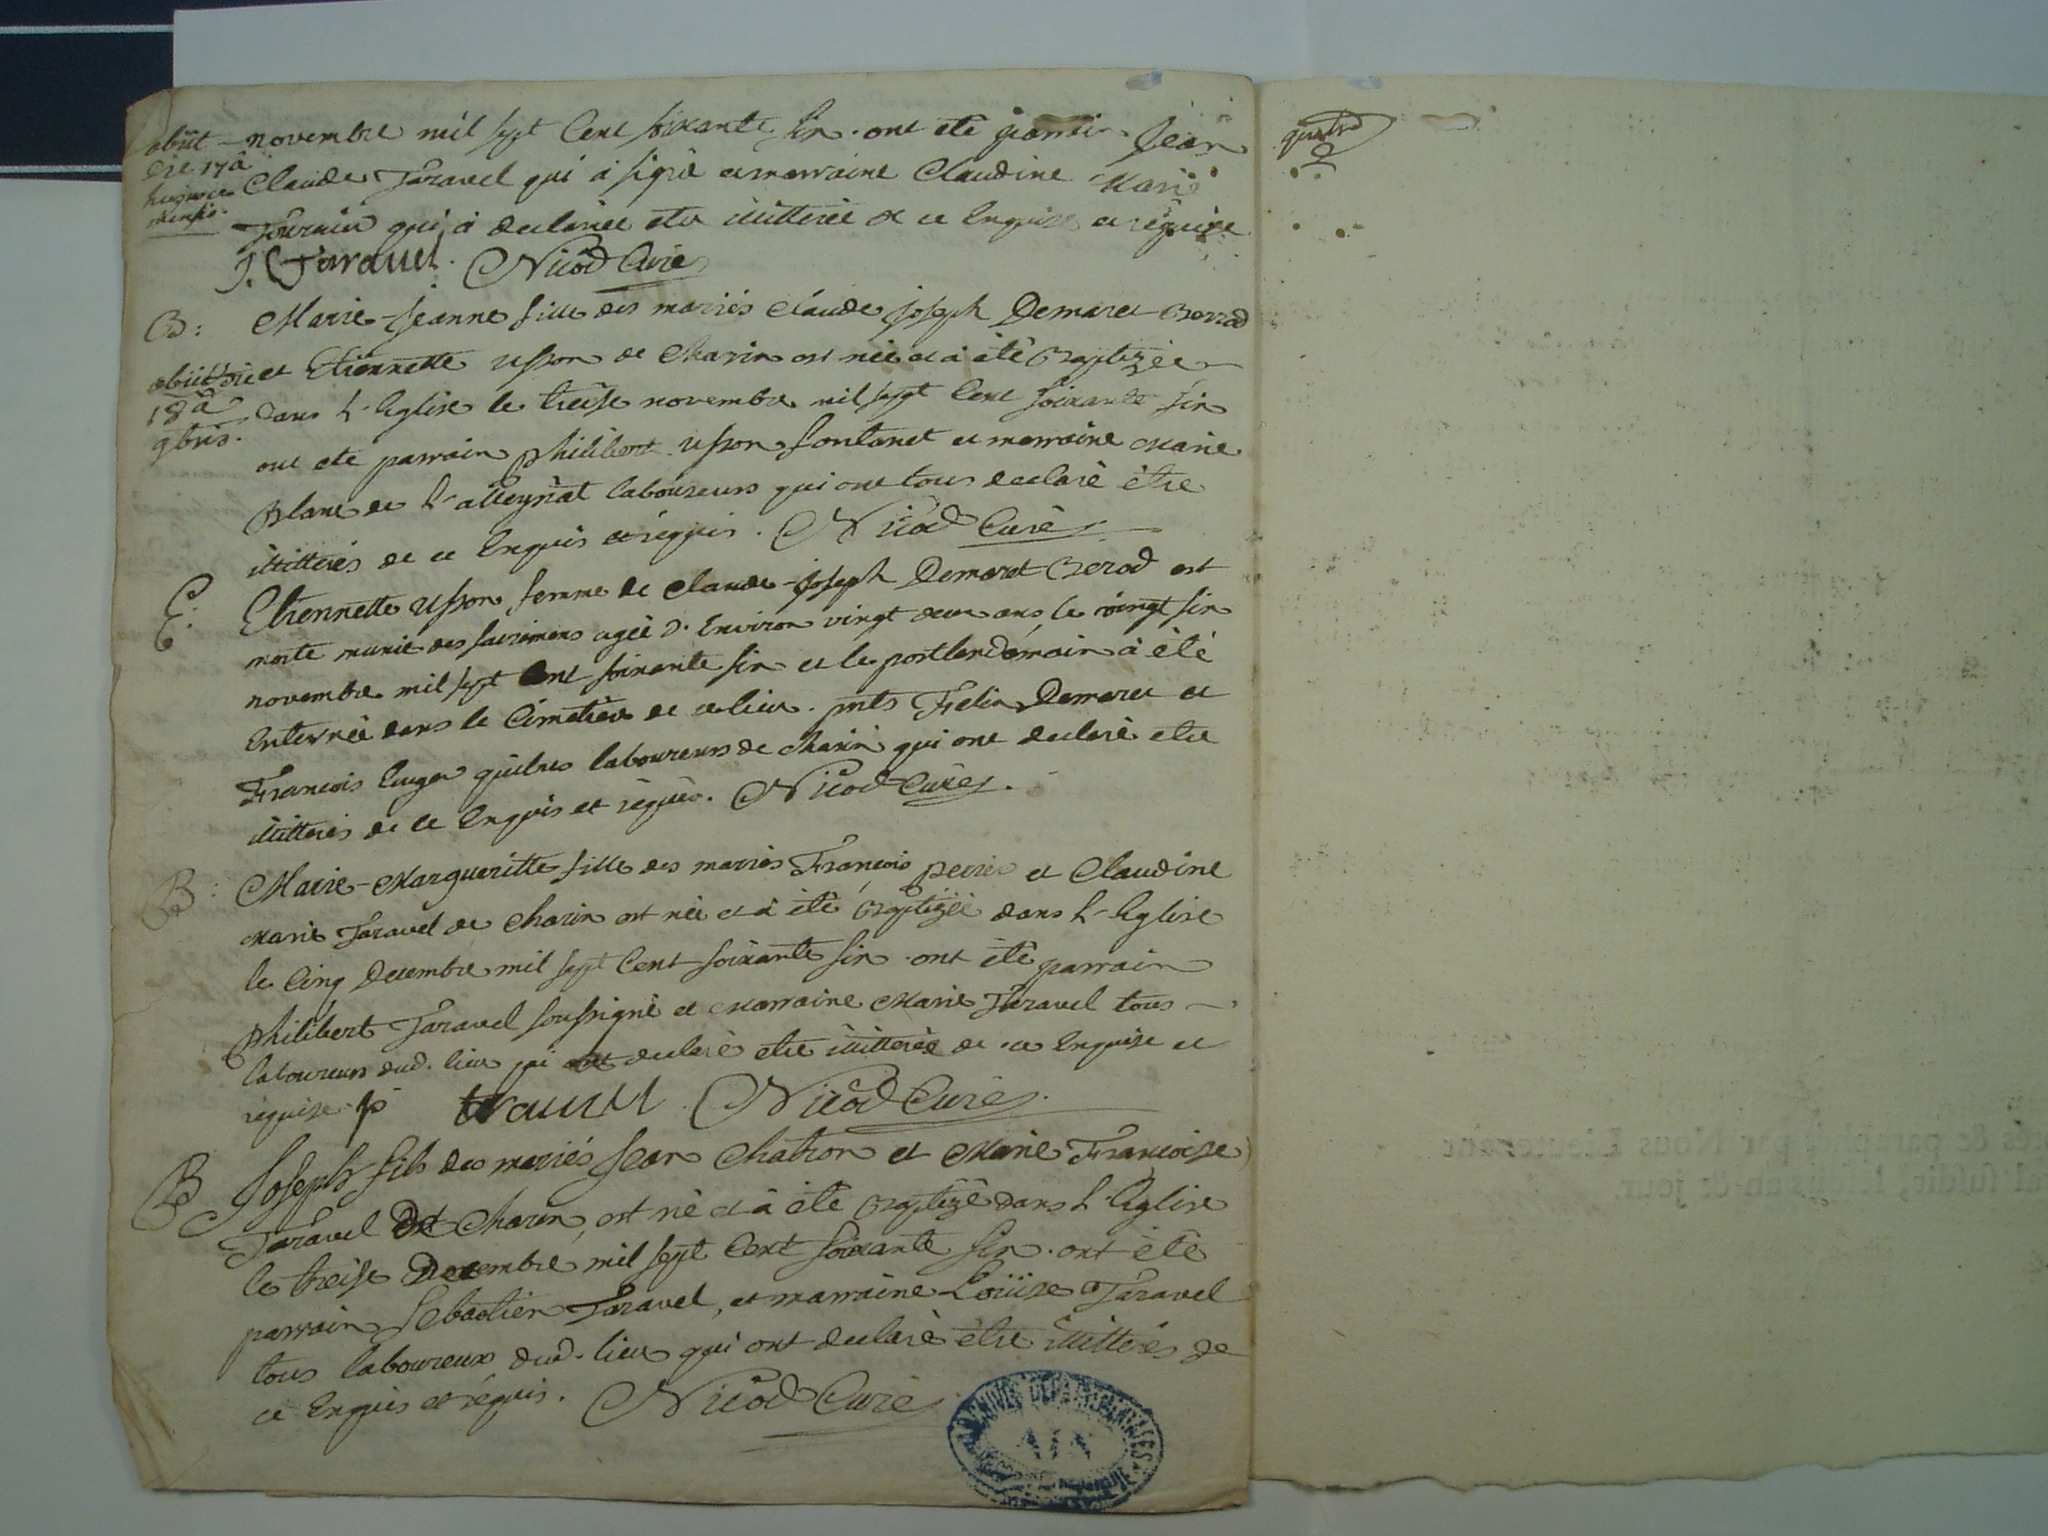 obiit novembre mil sept Cent soixante six. ont eté parrain Jean
die 17a
hujusce Claude Taravel qui à signé et marraine Claudine Marie
mensis.
qui à declarée etre illitterée de ce Enquise et requise
J. C Taravel. Nicod Curé
B: Marie-Jeanne fille des mariés Claude joseph Demaret Berrod
obiit die et Etiennette Usson de Charin est née et à été Baptizée
18a dans L'Eglise le treise novembre mil sept Cent soixante six
9bris. ont eté parrain philibert Usson fontanet et marraine Marie
Blanc de L'alleyriat laboureurs qui ont tous declaré être
illitterés de ce Enquis et requis. Nicod Curé
E: Etiennette Usson femme de Claude-Joseph Demaret Berod est
morte munie des sacremens agée d'Environ vingt deux ans, le vingt six
novembre mil sept Cent soixante six et le postlendémain à été
Enterrée dans le Cimetière de ce lieu. pnts Felix Demaret et
François laboureurs de Charin qui ont declaré etre
illitterés de ce Enquis et requis. Nicod Curé.
B: Marie-Margueritte fille des mariés François perrier et Claudine
Marie Taravel de Charin est née et à été Baptizée dans L'Eglise
le Cinq Decembre mil sept Cent soixante six. ont été parrain
philibert Taravel soussigné et Marraine Marie Taravel tous
laboureurs dud. lieu qui ont declaré etre illitterée de ce Enquise et
requise. p taravel Nicod Curé.
B Joseph fils des mariés Jean Chatron et Marie Françoise
Taravel De Charin, est né et à été Baptizé dans L'Eglise
le treise Decembre mil sept Cent soixante six. ont été
parrain Sebastien Taravel, et marraine Loüise Taravel
tous laboureux dud. lieu qui ont declaré être illitterés de
ce Enquis et réquis. Nicod Curé
ARCHIVES DEPARTEMENTALES
AIN